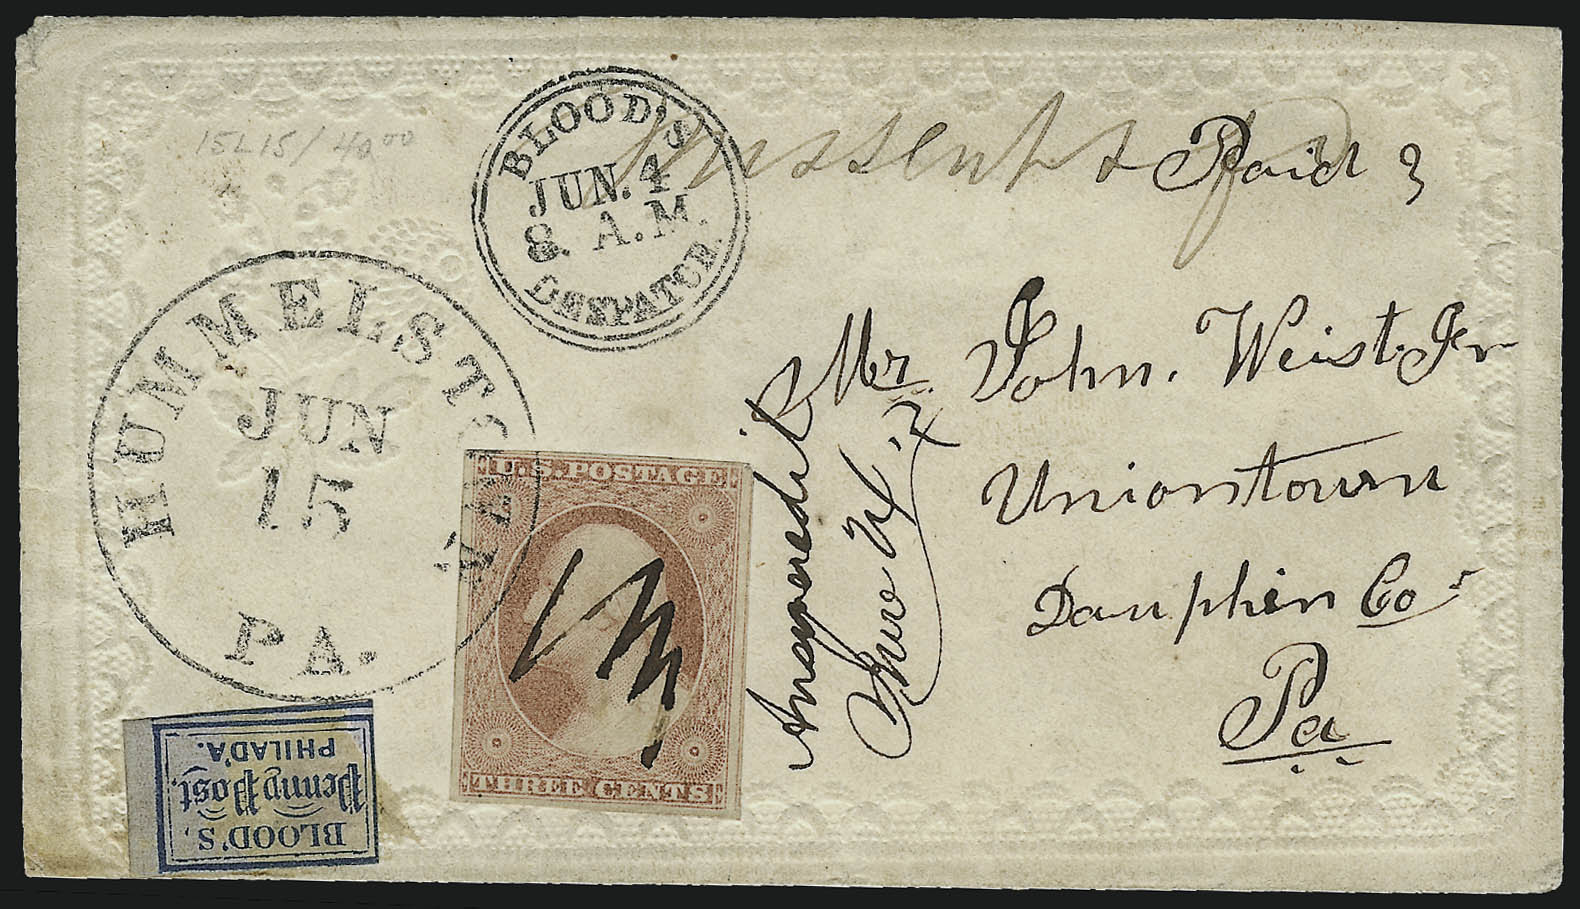 15L15/40.00
BLOOD'S
JUN. 4
8 A.M.
DESPATCH.
Missent &
Paid 3
HUMMELSTOWN
JUN
15
PA.
Mr. John. Weist. Jr
Uniontown
Dauphin Co
Pa
Answered
U.S. POSTAGE
THREE CENTS
BLOOD'S,
Penny Post.
PHILAD'A.